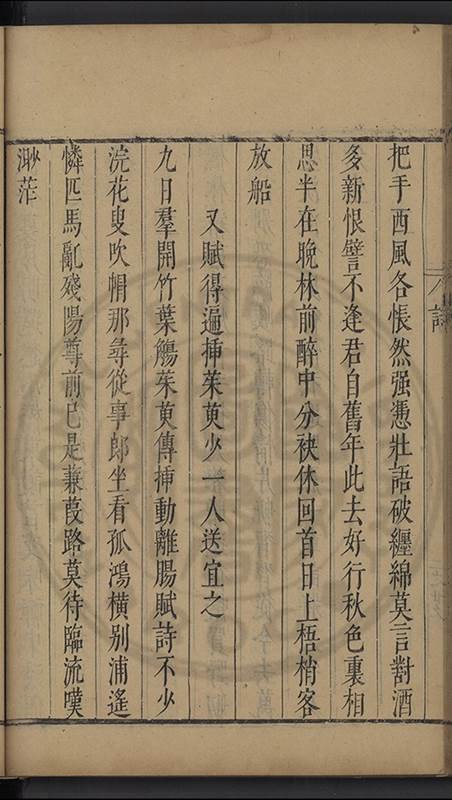 把手西風各悵然强憑壯語破纏綿莫言對酒
多新恨譬不逢君自舊年此去好行秋色裏相
思半在晚林前醉中分袂休回首日上梧梢客
放船
又賦得遍揷茱萸少一人送宜之
九日羣開竹葉觴茱萸傳揷動離腸賦詩不少
浣花叟吹帽那尋從事郎坐看孤鴻橫别浦遙
憐匹馬亂殘陽尊前已是蒹葭路莫待臨流嘆
渺茫